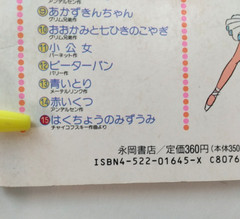 アンデルセン作
⑨ あかずきんちゃん
グリム兄弟作
⑩ おおかみと七ひきのこやぎ
グリム兄弟作
⑪ 小公女
バーネット作
⑫ ピーターパン
バリー作
⑬ 青いとり
メーテルリンク作
⑭ 赤いくつ
アンデルセン作
⑮ はくちょうのみずうみ
チャイコフスキー作曲より
永岡書店/定価360円(本体350
ISBN4-522-01645-X C8076